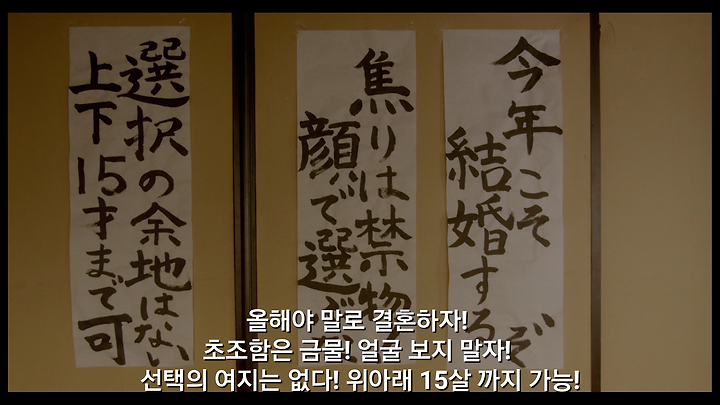 今年こそ
結婚するぞ
焦りは禁物
顔で選ぶ
選択の余地はない
上下15才まで可
올해야 말로 결혼하자!
초조함은 금물! 얼굴 보지 말자!
선택의 여지는 없다! 위아래 15살 까지 가능!